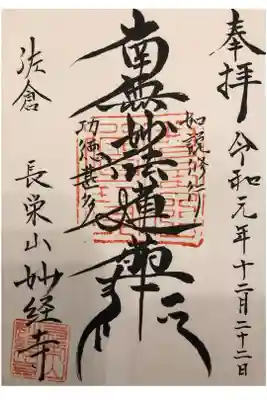 奉拝 令和元年十二月二十二日
如説修行
南無妙法蓮華経
功徳甚多
佐倉
長栄山妙経寺